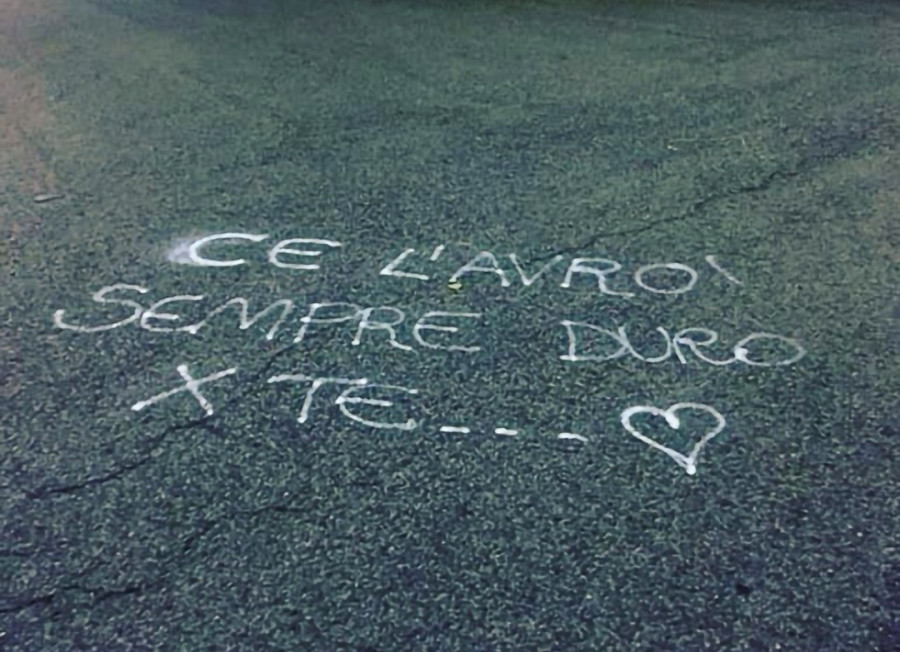 CE L'AVRO'
SEMPRE DURO
X TE --- ♡